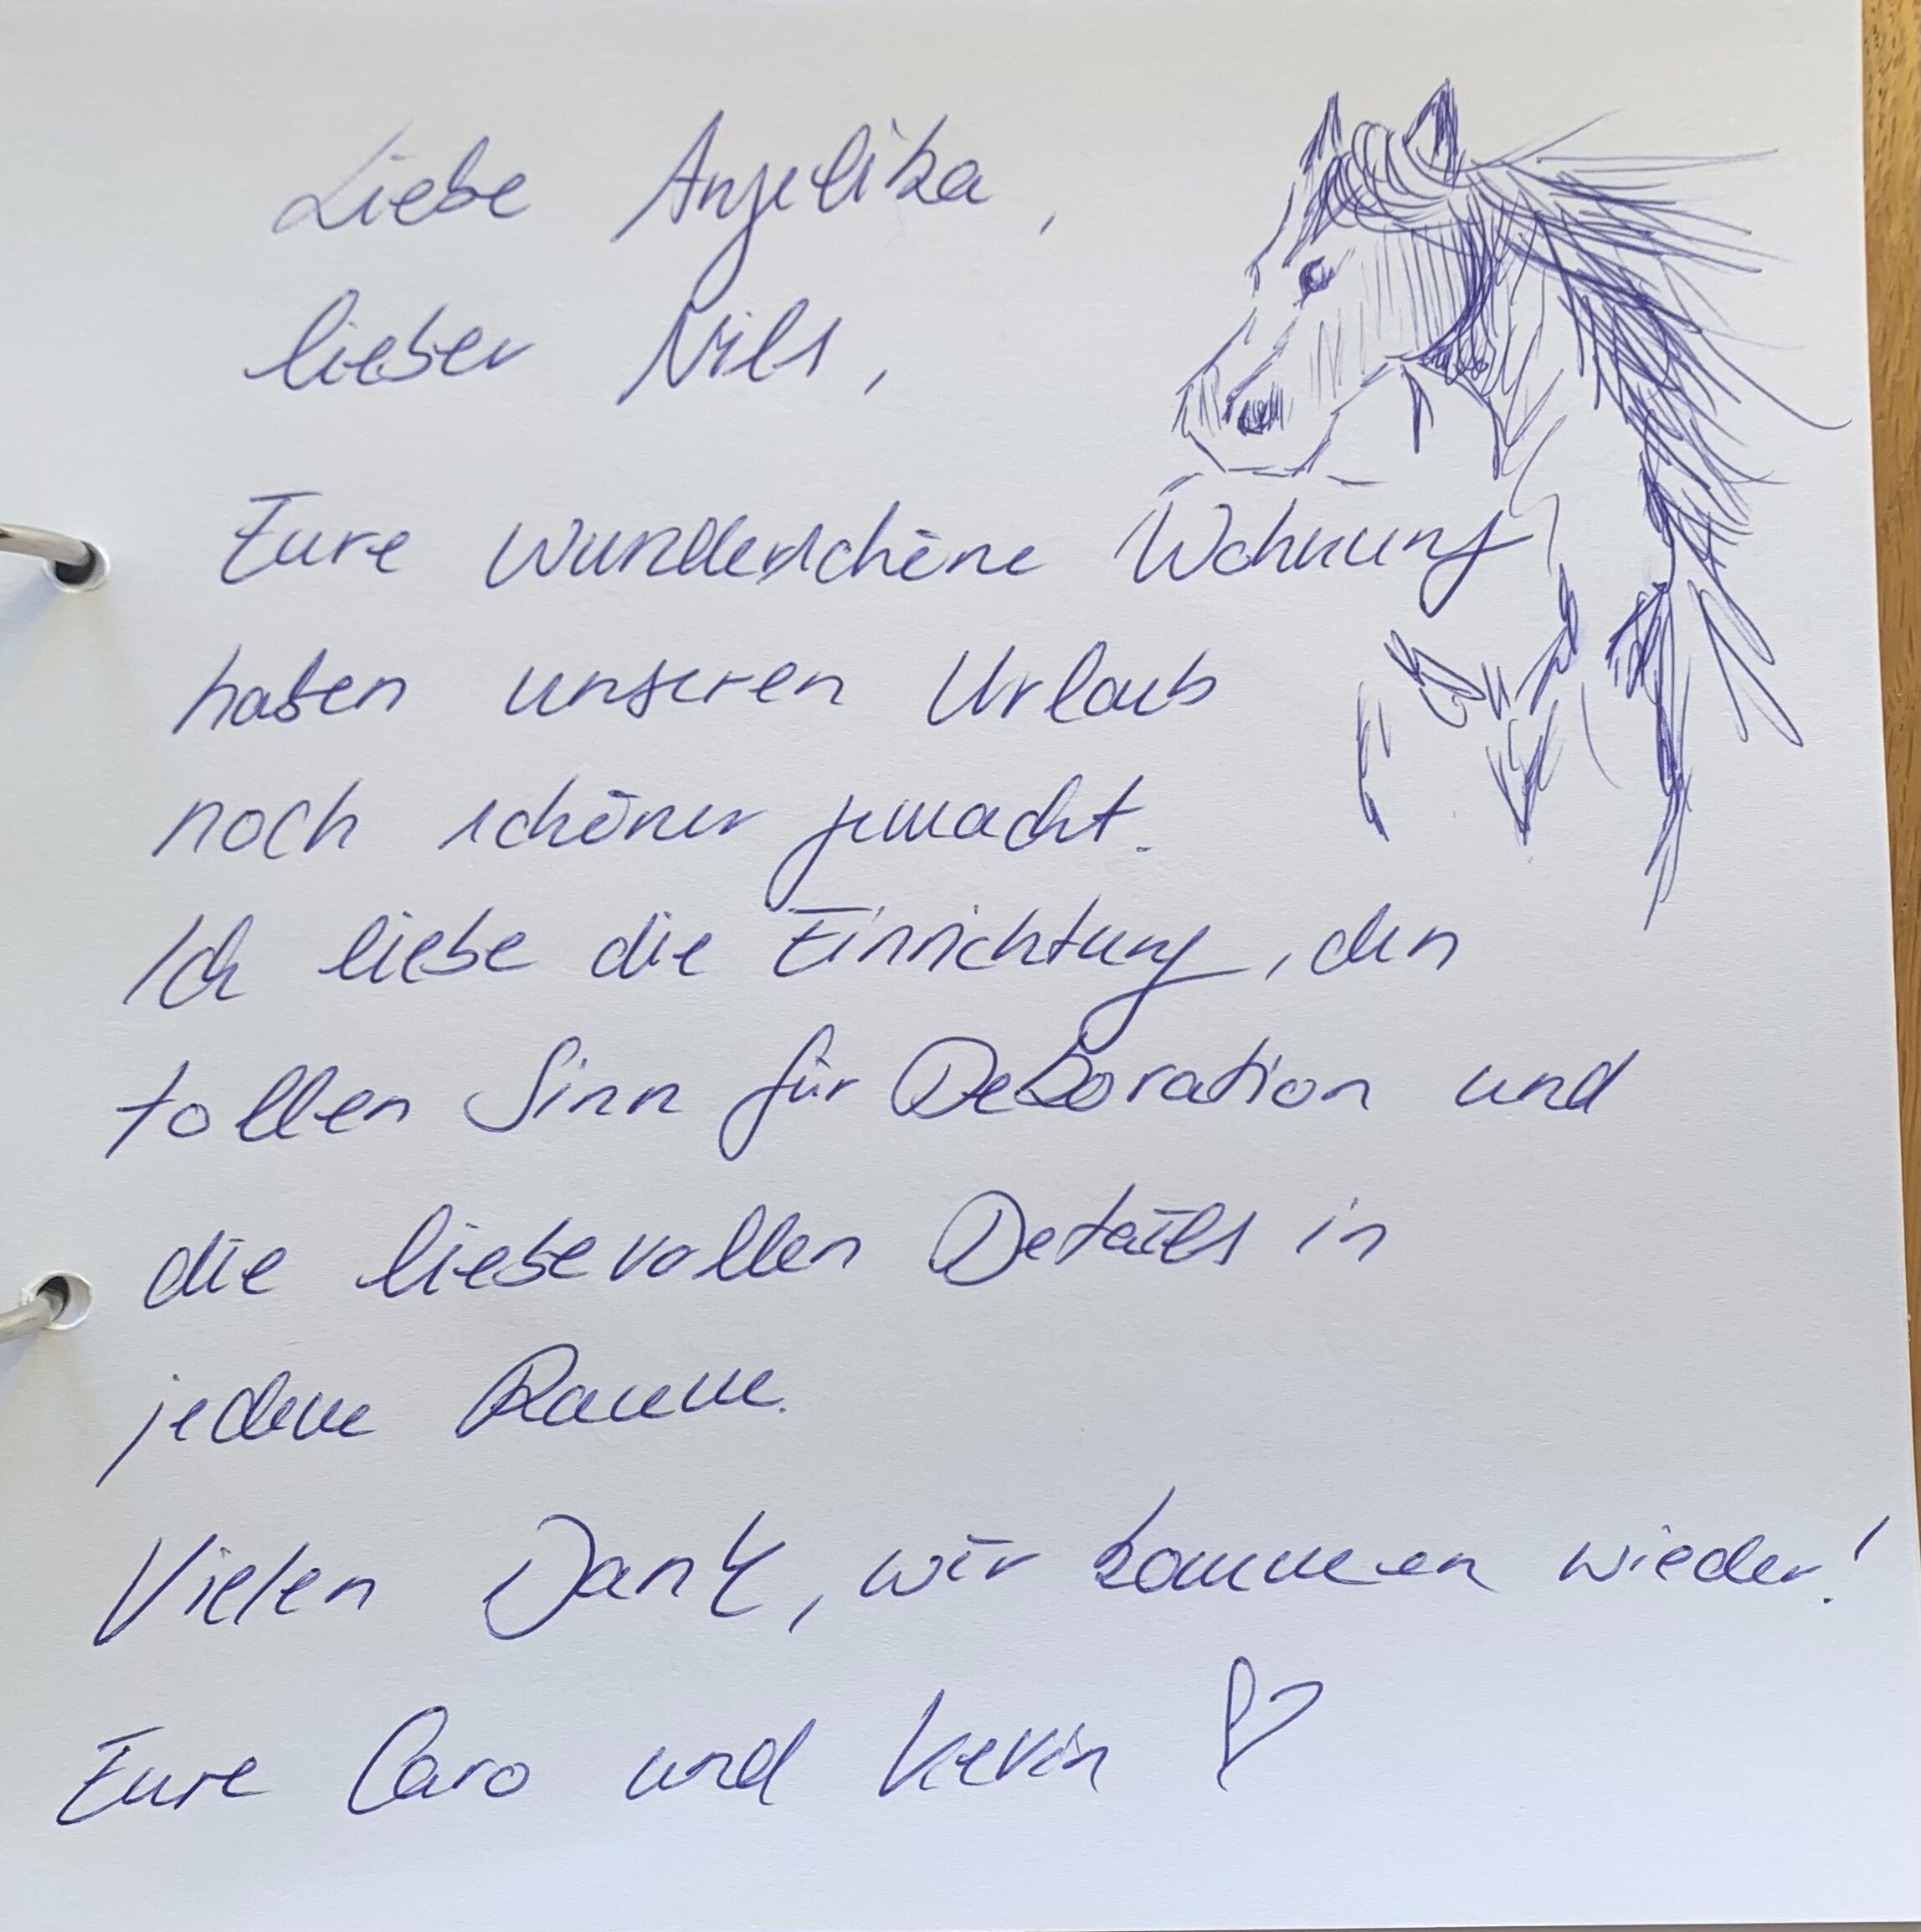 Liebe Angelika,
lieber Nils,
Eure wunderschöne Wohnung
haben unseren Urlaub
noch schöner gemacht.
Ich liebe die Einrichtung, den
tollen Sinn für Dekoration und
die liebevollen Details in
jedem Raum.
Vielen Dank, wir kommen wieder!
Eure Caro und Kevin ♡